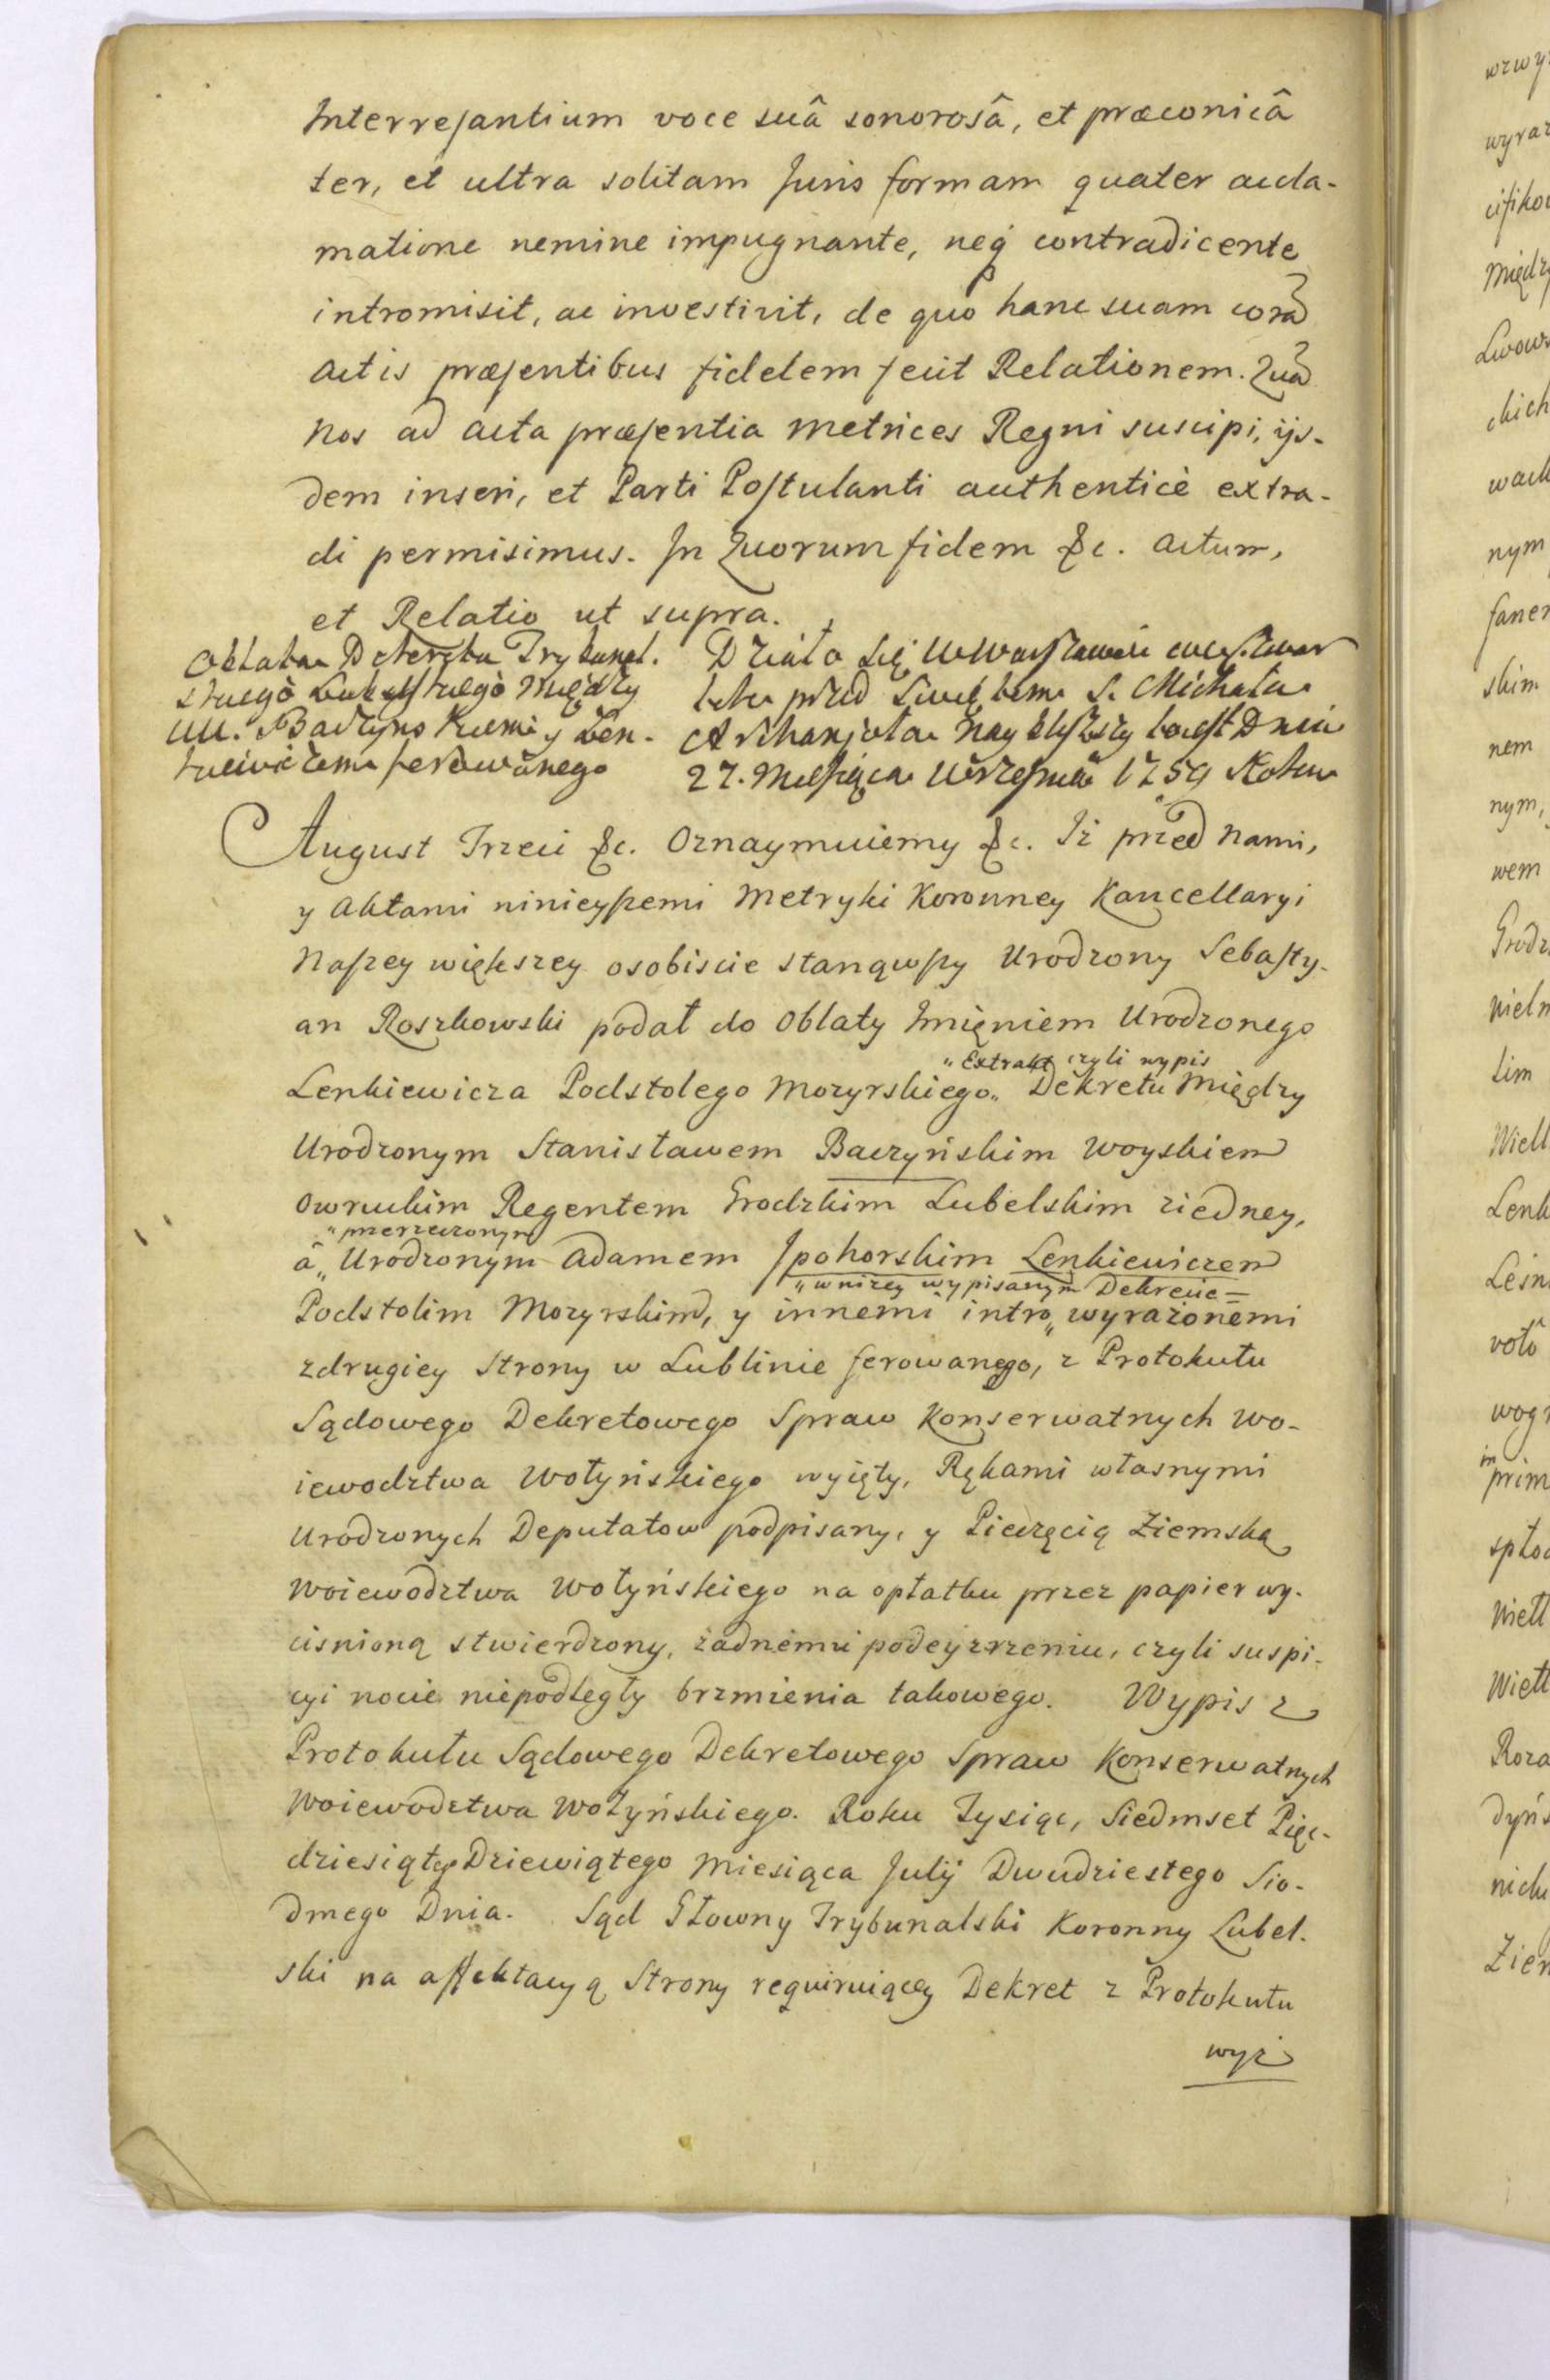 Interressantium voce suâ sonorosâ, et præconicâ
ter, et ultra solitam Juris formam quater accla-
matione nemine impugnante, neq contradicente
intromisit, ac investivit, de quo hanc suam corã
actis præsentibus fidelem fecit Relationem. Quã
Nos ad acta præsentia Metrices Regni suscipi, ijs-
dem inseri, et Parti Postulanti authenticè extra-
di permisimus. In Quorum fidem &c. Actum,
et Relatio ut supra.
Oblata Dekretu Trybunal.
skiego Lubelskiego między
UU. Baczyńskiemi y Len-
kiewiczem ferowanego
Działo się w Warszawie we Czwar
tek przed Świętem S. Michała
Archanioła nayblisszy to iest Dnia
27. Miesiąca Września 1759 Roku
August Trzeci &c. Oznaymuiemy &c. Iż przed Nami,
y Aktami ninieyszemi Metryki Koronney Kancellaryi
Naszey większey osobiscie stanąwszy Urodzony Sebasty-
an Roszkowski podał do Oblaty Imięniem Urodzonego
„Extrakt czyli wypis
Lenkiewicza Podstolego Mozyrskiego„ Dekretu Między
Urodzonym Stanisławem Baczyńskim Woyskiem
Owruckim Regentem Grodzkim Lubelskim ziedney,
„przerzeczonym
â„ Urodzonym Adamem Ipohorskim Lenkiewiczem
„wnizey wypisanym Dekrecie=
Podstolim Mozyrskim, y innemi intro„ wyrażonemi
zdrugiey Strony w Lublinie ferowanego, z Protokułu
Sądowego Dekretowego Spraw Konserwatnych Wo-
iewodztwa Wołyńskiego wyięty, Rękami własnymi
Urodzonych Deputatow podpisany, y Pieczęcią Ziemską
Woiewodztwa Wołyńskiego na opłatku przez papier wy-
cisnioną stwierdzony, żadnemu podeyzrzeniu, czyli suspi-
cyi nocie niepodległy brzmienia takowego. Wypis z
Protokułu Sądowego Dekretowego Spraw Konserwatnych
Woiewodztwa Wołyńskiego. Roku Tysiąc, Siedmset Pięć-
dziesiątego Dziewiątego Miesiąca Julij Dwudziestego Sio-
dmego Dnia. Sąd Głowny Trybunalski Koronny Lubel-
ski na affektacyą Strony requiruiącey Dekret z Protokułu
wyż